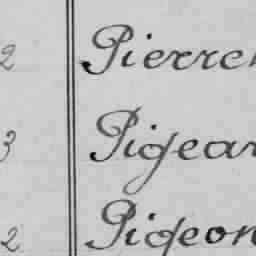 2 Pierre
3 Pigea
2 Pigeon